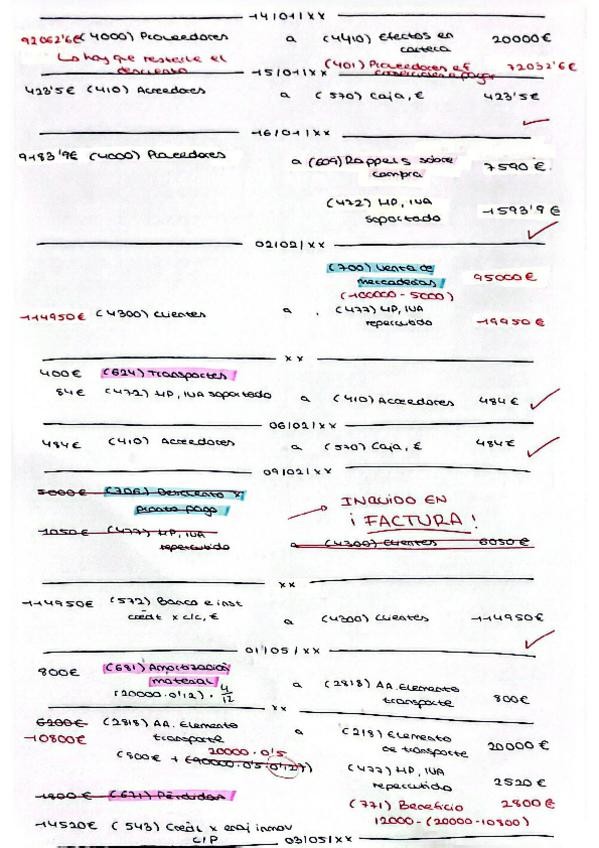 14/01/xx
92062'6€ (4000) Proveedores a (4410) Efectos en 20000€
cartera
Lo hay que restarle el (401) Proveedores ef 72032'6€
descuento comerciales a pagar
15/01/xx
423'5€ (410) Acreedores a (570) Caja, € 423'5€
16/01/xx
9183'9€ (4000) Proveedores a (609) Rappels sobre 7590€
compra
(472) HP, IVA 1593'9€
soportado
02/02/xx
(700) Venta de 95000€
mercaderías
(100000-5000)
114950€ (4300) Clientes a (477) HP, IVA 19950€
repercutido
xx
400€ (624) Transportes
84€ (472) HP, IVA soportado a (410) Acreedores 484€
06/02/xx
484€ (410) Acreedores a (570) Caja, € 484€
09/02/xx
5000€ (706) Descuento x
pronto pago
INCLUIDO EN
¡ FACTURA !
1050€ (477) HP, IVA
repercutido a (4300) Clientes 6050€
xx
114950€ (572) Banco e inst a (4300) Clientes 114950€
crédit x c/c, €
01/05/xx
800€ (681) Amortización
material a (2818) AA. Elemento 800€
(20000·0'12)· 4/12 transporte
xx
6200€ (2818) AA. Elemento a (218) Elemento 20000€
10800€ transporte de transporte
20000·0'5
(800€ + (90000·0'5·0'12))
(477) HP, IVA 2520€
repercutido
1800€ (671) Pérdidas (771) Beneficio 2800€
12000-(20000-10800)
14520€ (543) Crédit x enaj inmov
C/P 03/05/xx